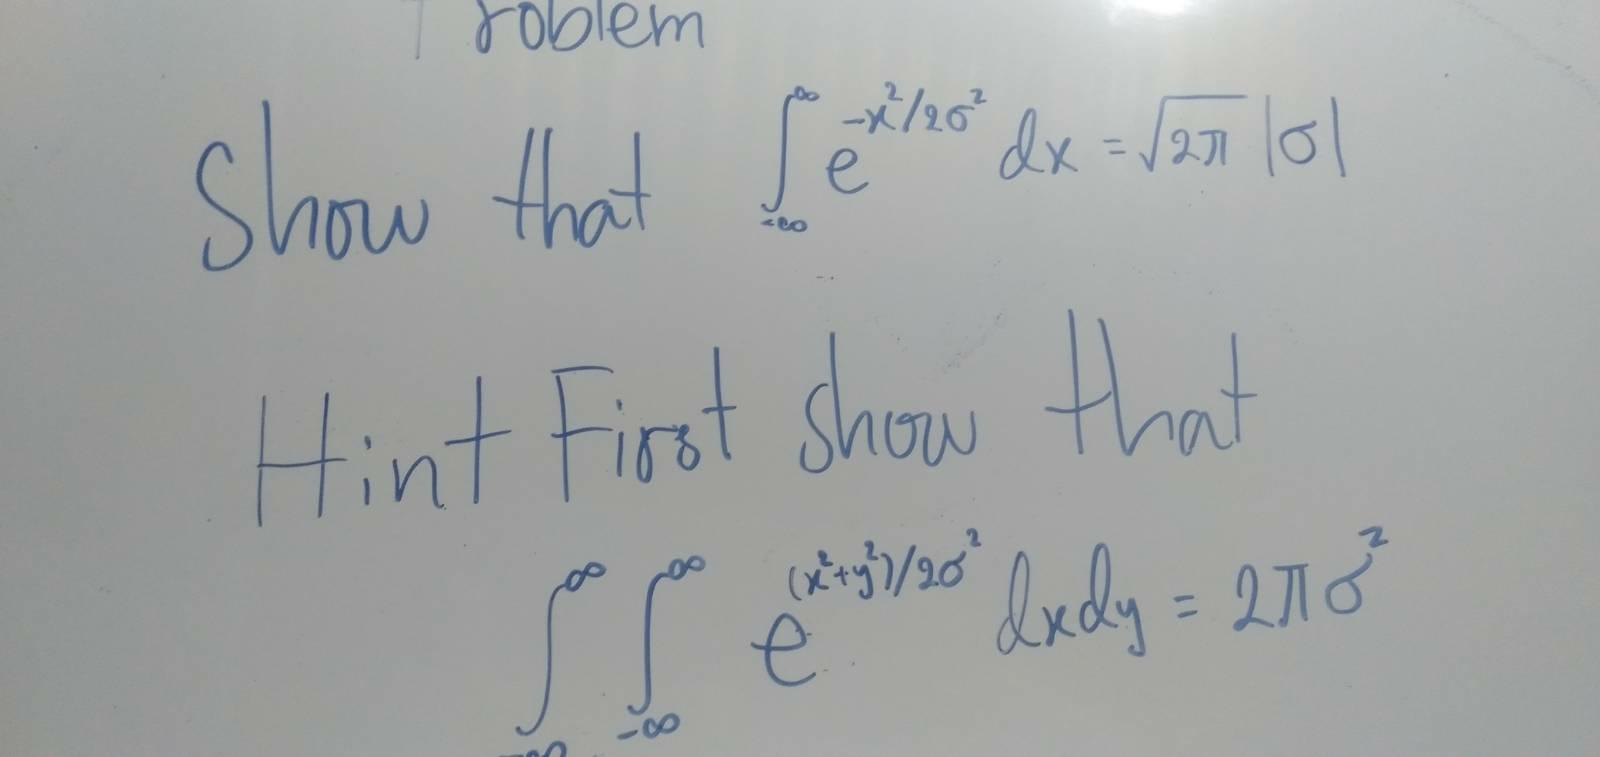 Problem
Show that ∫_{-∞}^{∞} e^{-x²/2σ²} dx = √2π |σ|
Hint First show that
∫_{-∞}^{∞} ∫_{-∞}^{∞} e^{(x²+y²)/2σ²} dxdy = 2πσ²